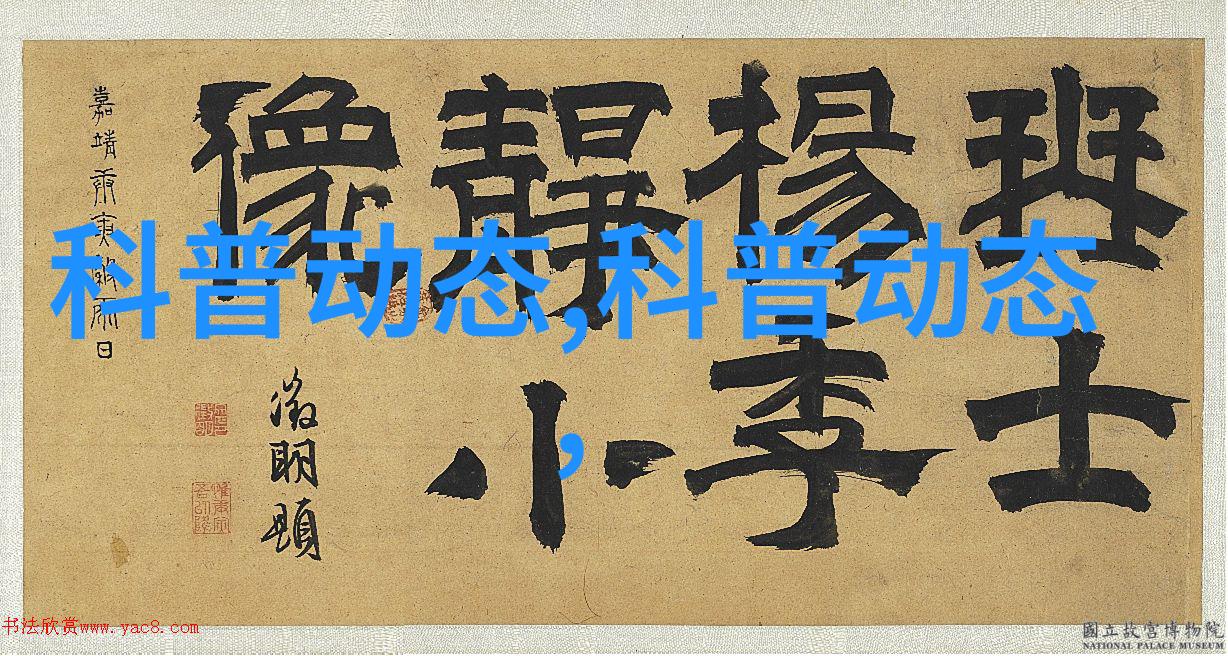 班士
楊季
靜小
像
嘉靖庚寅穀雨日
徵明題
科普动态,科普动态
,
书法欣赏www.yac8.com
國立故宮博物院
NATIONAL PALACE MUSEUM